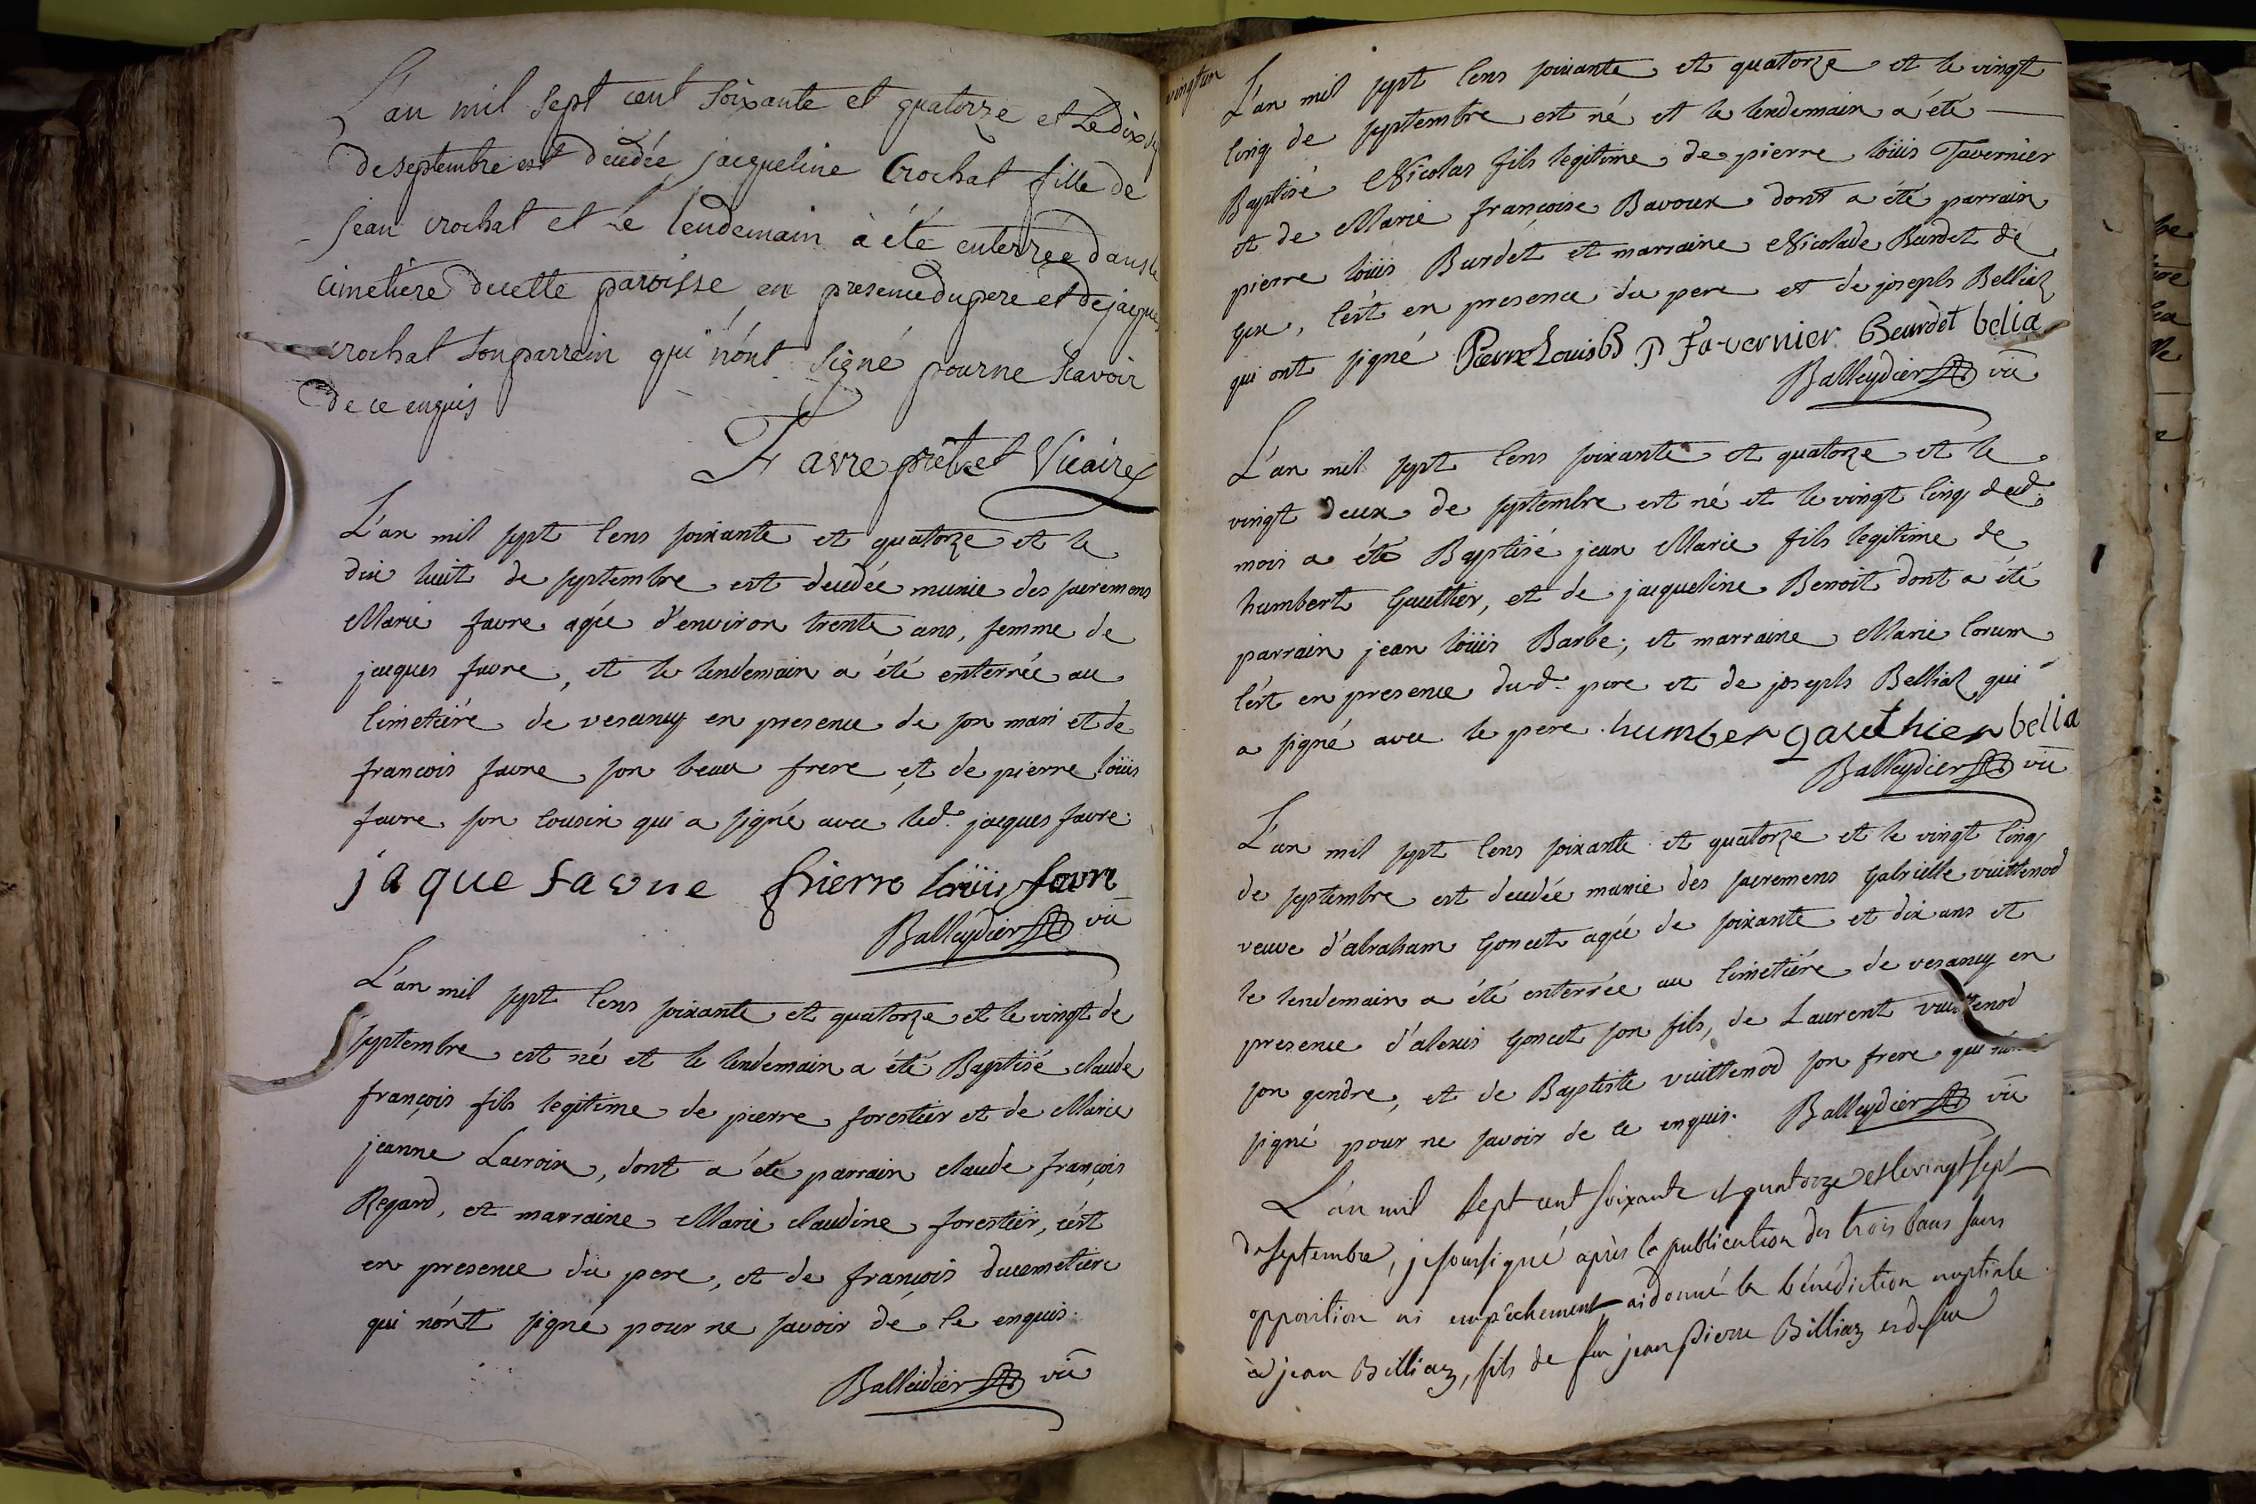 L'an mil sept cent soixante et quatorze et Le dix
de septembre est décédée jacqueline Crochat fille de
jean crochat et Le lendemain à été enterrée dans le
cimetière decette paroisse, en presence du pere et de jacques
crochat son parrein qui n'ont signé pour ne scavoir
de ce enquis
Favre prêt et Vicaire
L'an mil sept cens soixante et quatorze et le
dix huit de septembre est decedée munie des sacremens
Marie favre agée d'environ trente ans, femme de
jacques favre, et le lendemain a été enterrée au
cimetiére de vesancy en presence de son mari et de
francois favre son beau frere et de pierre loüis
favre son cousin qui a signé avec led. jacques favre.
jaque favre pierre loüis favre
Balleydier vic
L'an mil sept cens soixante et quatorze et le vingt de
septembre est né et le lendemain a été Baptisé claude
françois fils legitime de pierre forestier et de Marie
jeanne Lacroix, dont a été parrain claude françois
Regard, et marraine Marie claudine forestier, c'est
en presence du pere, et de françois ducemetiere
qui n'ont signé pour ne savoir de ce enquis.
Balleidier vic
vingt un
L'an mil sept cens soixante et quatorze et le vingt
cinq de septembre est né et le lendemain a été
Baptisé Nicolas fils legitime de pierre loüis Tavernier
et de Marie françoise Bavoux dont a été parrain
pierre loüis Burdet et marraine Nicolade Burdet de
gex, c'est en presence du pere et de joseph Belliaz
qui ont signé Pierre Louis B P Tavernier Beurdet belia
Balleydier vic
L'an mil sept cens soixante et quatorze et le
vingt deux de septembre est né et le vingt cinq dud.
mois a été Baptisé jean Marie fils legitime de
humbert Gauthier, et de jacqueline Benoit dont a été
parrain jean loüis Barbe, et marraine Marie Corum
c'est en presence dud. pere et de joseph Belliaz qui
a signé avec le pere. humber gauthier belia
Balleydier vic
L'an mil sept cens soixante et quatorze et le vingt cinq
de septembre est decedée munie des sacremens Gabrielle vuittenod
veuve d'abraham Goncet agée de soixante et dix ans et
le lendemain a été enterrée au cimetiére de vesancy en
presence d'alexis Goncet son fils, de Laurent vuittenod
son gendre, et de Baptiste vuittenod son frere qui n'ont
signé pour ne savoir de ce enquis. Balleydier vic
L'an mil sept cent soixante et quatorze et le vingt sept
de septembre, je soussigné après la publication des trois bans sans
opposition ni empêchement ai donné la bénédiction nuptiale
à jean Billiaz, fils de feu jean pierre Billiaz et de feu